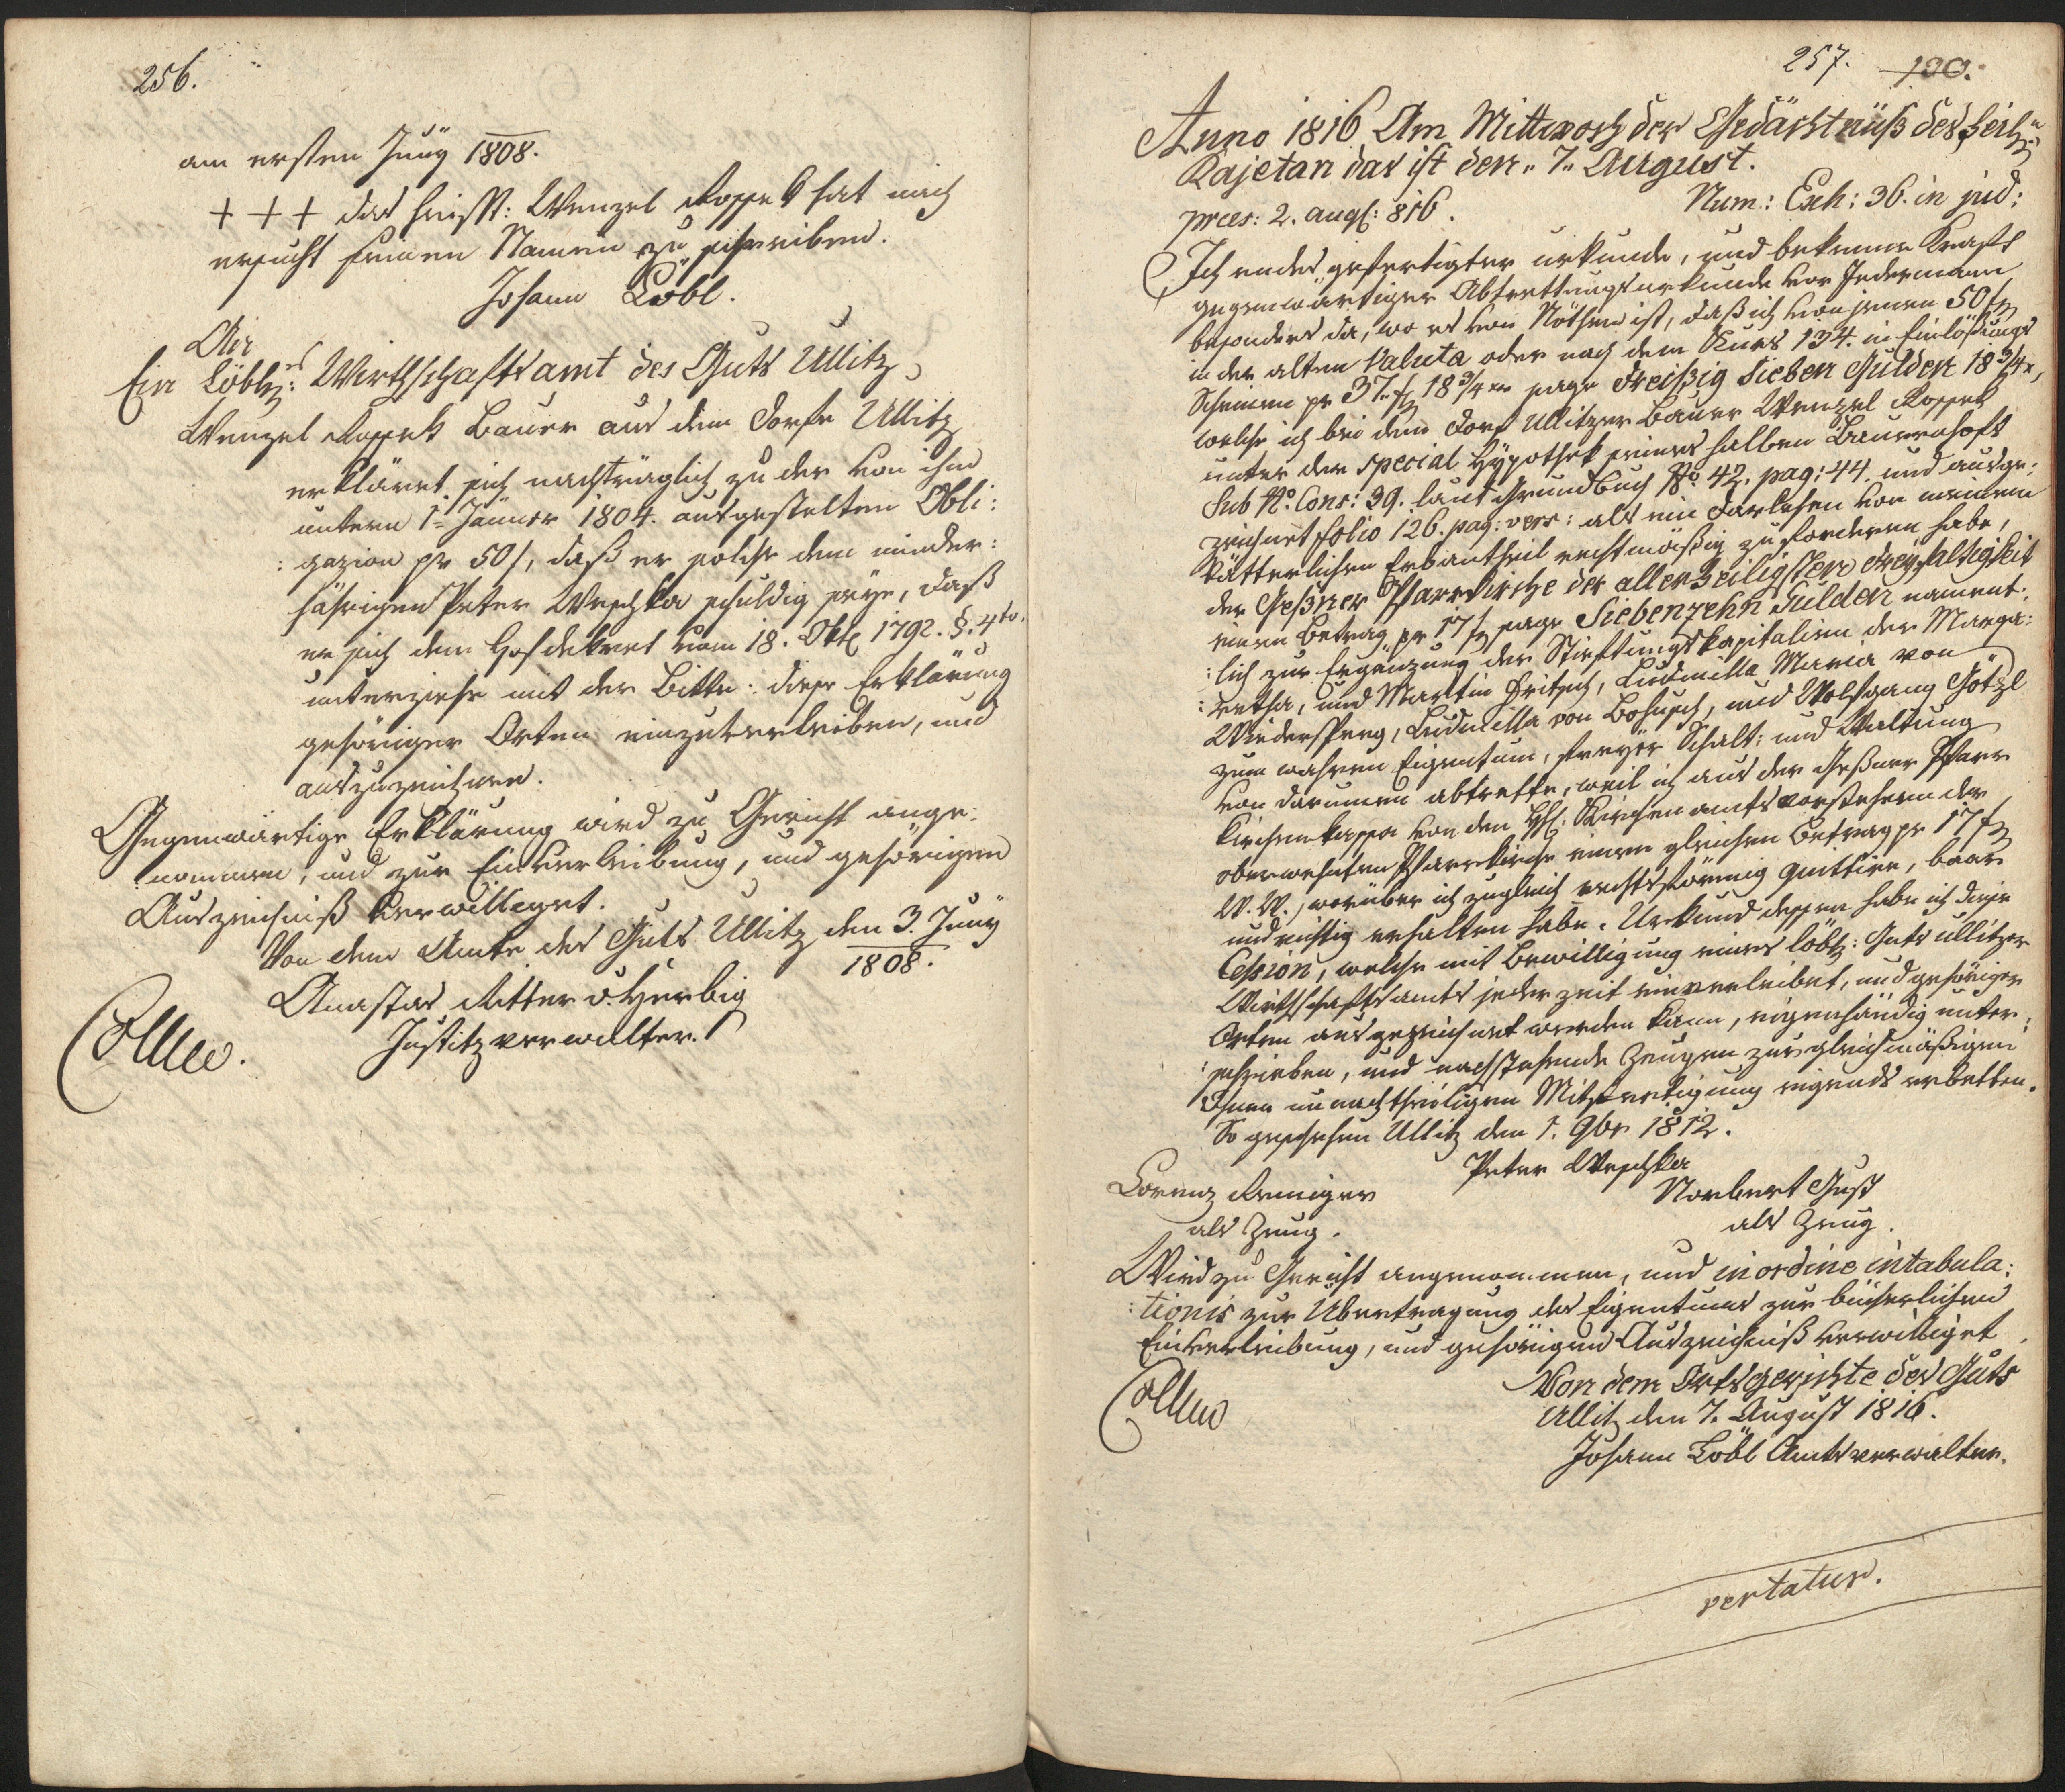 256.
am ersten Juny 1808.
+ + + das heisst: Wenzel Koppek hat mich
ersucht seinen Namen zu schreiben.
Johann Löbl.
An
Ein Löbl: Wirthschaftsamt des Guts Ullitz
Wenzel Koppek Bauer aus dem Dorfe Ullitz
erkläret sich nachträglich zu der von ihm
unterm 1= Jänner 1804. ausgestelten Obli:
: gazion pr 50 f, daß er solche dem minder:
jährigen Peter Weschka schuldig seye, daß
er sich dem Hofdekret vom 18. Okt 1792. §. 4to.
unterziehe mit der Bitte: diese Erklärung
gehöriger Orten einzuverleiben, und
auszuzeichnen.
Gegenwärtige Erklärung wird zu Gericht ange:
: nommen, und zur Einverleibung, und gehörigen
Auszeichniß verwilliget.
Von dem Amte des Guts Ullitz den 3. Juny
1808.
Anastas Ritter v. Herbig
Justitzverwalter.
Coll
257. 130.
Anno 1816 Am Mittwoch der Gedächtnüß des heil:
Kajetan das ist den „7„ August.
præs: 2. aug: 816. Num: Exh: 36. in jud:
Ich endes gefertigter urkunde, und bekenne Kraft
gegenwärtiger Abtrettungsurkunde vor Jedermann
besonders da, wo es von Nöthen ist, daß ich von jenen 50 f
in der alten Valuta oder nach dem Kurs 134. in Einlößungs
Scheinen pr 37 „ f 18 3/4 xr sage Dreißig Sieben Gulden 18 3/4 x,
welche ich bei dem Dorf Ullitzer Bauer Wenzel Koppek
unter der special Hypothek seines halben Bauernhofs
Sub No. Cons: 39. laut Grundbuch No. 42. pag: 44. und ausge:
zeichnet folio 126. pag: vers: als ein Darlehen von meinem
Vätterlichen Erbantheil rechtmäßig zu forderen habe,
der Geßner Pfarrkirche der allerheiligsten Dreyfaltigkeit
einen Betrag pr 17 f sage Siebenzehn Gulden nament:
: lich zur Ergänzung der Stiftungskapitalien der Marga:
: retha, und Martin Fritsch, Ludmilla Maria von
Widersperg, Ludmilla von Bohusch, und Wolfgang Götzl
zum wahren Eigentum, freyer Schalt: und Waltung
von darumen abtrette, weil ich aus der Geßner Pfarr
Kirchenkassa von den HH: Kirchenamtsvorstehern der
oberwehnten Pfarrkirche einen gleichen Betrag pr 17 f
W. W., worüber ich zugleich rechtsförmig quittire, baar
und richtig erhalten habe. Urkund dessen habe ich diese
Cession, welche mit Bewilligung eines löbl: Guts Ullitzer
Wirthschaftsamts jeder zeit einverleibet, und gehöriger
Orten ausgezeichnet werden kann, eigenhändig unter:
: schrieben, und nachstehende Zeugen zur gleichmäßigen
Ihnen unnachtheiligen Mitfertigung eigends erbetten.
So geschehen Ullitz den 1. 9br 1812.
Peter Weschka
Lorenz Reniger
als Zeug.
Norbert Guß
als Zeug.
Wird zu Gericht angenommen, und in ordine intabula:
: tionis zur Übertragung des Eigentums zur bücherlichen
Einverleibung, und gehörigen Auszeichniß verwilliget.
Von dem Ortsgerichte des Guts
Ullitz den 7. August 1816.
Johann Löbl Amtsverwalter.
Coll
vertatur.